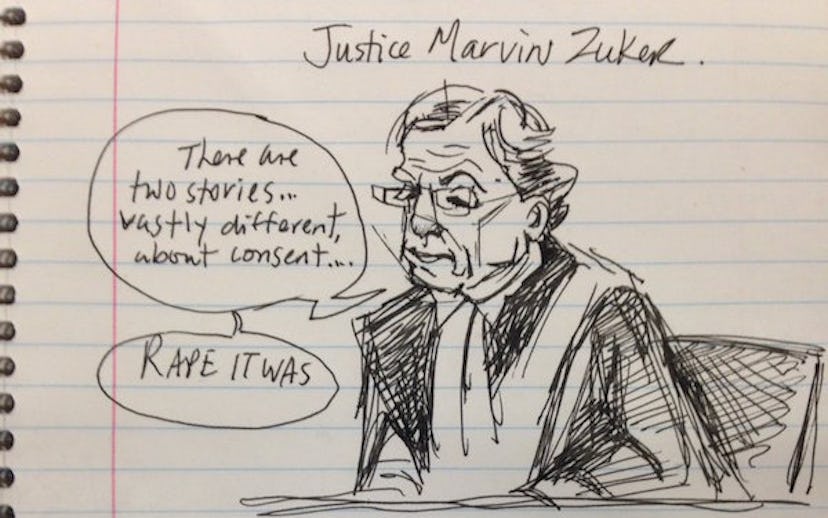 Justice Marvin Zuker.
There are
two stories...
vastly different,
about consent....
RAPE IT WAS